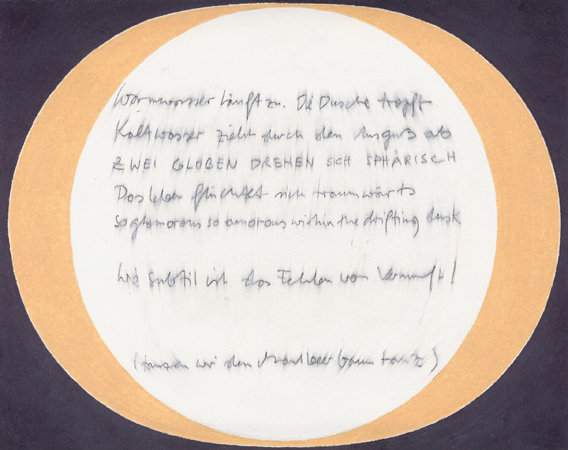 Warmwasser läuft zu. Die Dusche tropft
Kaltwasser zieht durch den Ausguß ab
ZWEI GLOBEN DREHEN SICH SPHÄRISCH
Das Leben flüchtet sich traumwärts
So glamorous so amorous within the drifting dusk
Wie subtil ist das Fehlen von Vernunft!
(tanzen wir den Maulbeerbaumtanz)